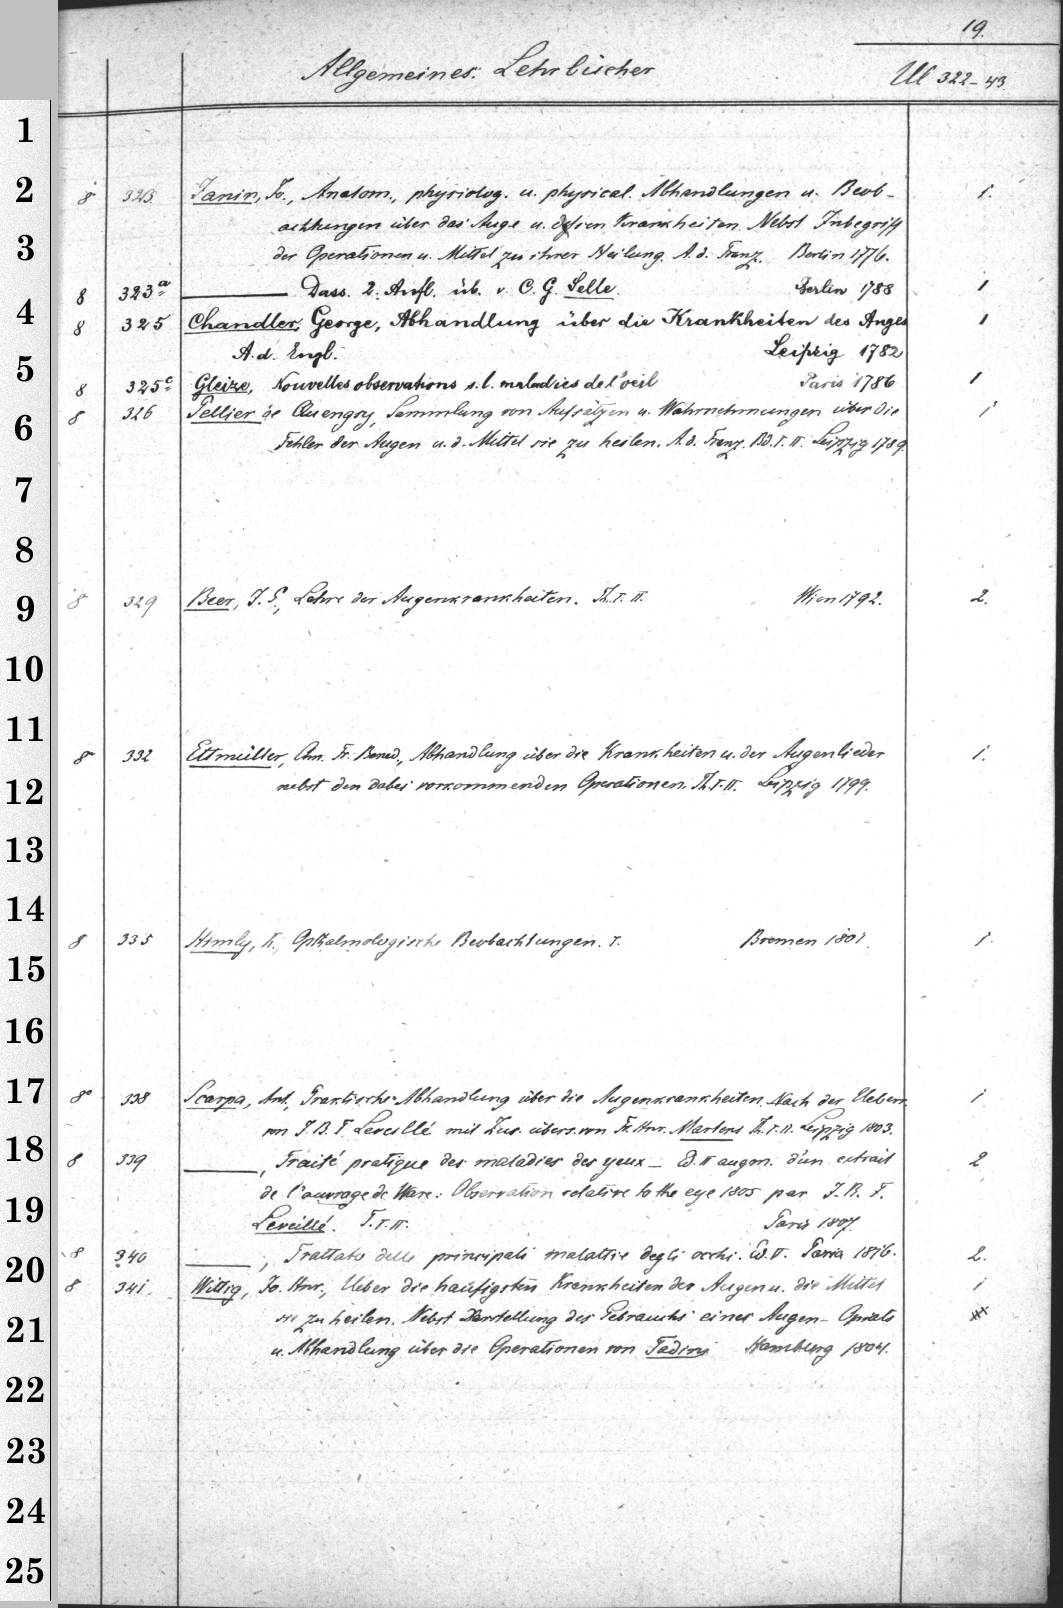 19.
Allgemeines. Lehrbücher
Ul 322-43.
1
2
8 323 Janin, Jo., Anatom., physiolog. u. physical. Abhandlungen u. Beob- 1.
achtungen über das Auge u. dessen Krankheiten. Nebst Inbegriff
3
der Operationen u. Mittel zu ihrer Heilung. A. d. Franz. Berlin 1776.
8 323a Dass. 2. Aufl. üb. v. C. G. Selle. Berlin 1788 1
4
8 325 Chandler, George, Abhandlung über die Krankheiten des Auges 1
A. d. Engl. Leipzig 1782
5
8 325c Gleize, Nouvelles observations s. l. maladies de l'oeil Paris 1786 1
8 326 Pellier de Quengsy, Sammlung von Aufsätzen u. Wahrnehmungen über die 1
6
Fehler der Augen u. d. Mittel sie zu heilen. A. d. Franz. Bd. I. II. Leipzig 1789.
7
8
8 329 Beer, J. G., Lehre der Augenkrankheiten. Th. I. II. Wien 1792. 2.
9
10
11
8 332 Ettmüller, Chn. Fr. Bened., Abhandlung über die Krankheiten u. der Augenlieder 1.
nebst den dabei vorkommenden Operationen. Th. I. II. Leipzig 1799.
12
13
14
8 335 Himly, K., Opthalmologische Beobachtungen. I. Bremen 1801. 1.
15
16
17
8 338 Scarpa, Ant., Praktische Abhandlung über die Augenkrankheiten. Nach der Uebers. 1
von J. B. F. Leveillé mit Zus. übers. von Fr. Hnr. Martens Th. I. II. Leipzig 1803.
18
8 339 , Traité pratique des maladies des yeux - Ed. II augm. d'un extrait 2
de l'ouvrage de Ware: Observation relative to the eye 1805 par J. B. F.
19
Leveillé. T. I. II. Paris 1807.
8 340 , Trattato delle principali malattie degli occhi. Ed. V. Pavia 1816. 2.
20
8 341. Wittig, Jo. Hnr., Ueber die haüfigsten Krankheiten der Augen u. die Mittel 1
sie zu heilen. Nebst Darstellung des Gebrauchs eines Augen-
21
u. Abhandlung über die Operationen von Tadini Hamburg 1804.
22
23
24
25